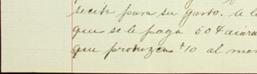 recibe para su gasto. a lo
que se le paga 60¢ diaria
que produzca $10 al mes